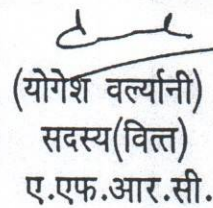 (योगेश वर्ल्यानी)
सदस्य(वित्त)
ए.एफ.आर.सी.